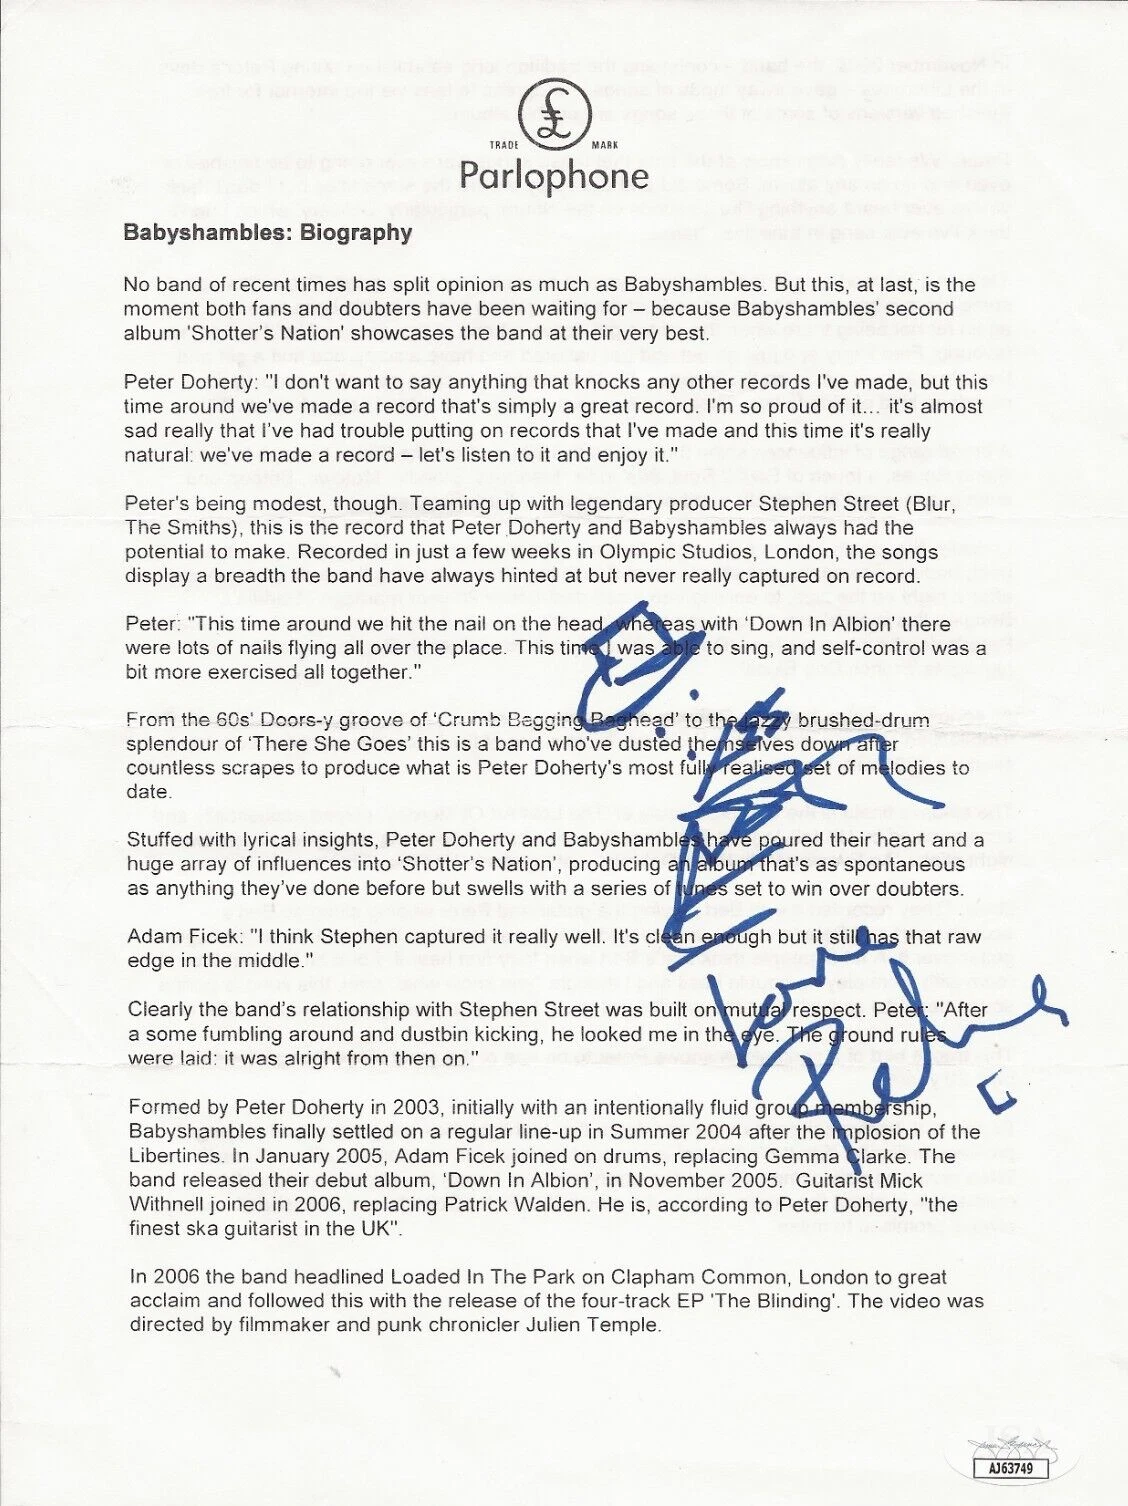 £
TRADE MARK
Parlophone
Babyshambles: Biography
No band of recent times has split opinion as much as Babyshambles. But this, at last, is the
moment both fans and doubters have been waiting for – because Babyshambles' second
album 'Shotter's Nation' showcases the band at their very best.
Peter Doherty: "I don't want to say anything that knocks any other records I've made, but this
time around we've made a record that's simply a great record. I'm so proud of it... it's almost
sad really that I've had trouble putting on records that I've made and this time it's really
natural: we've made a record – let's listen to it and enjoy it."
Peter's being modest, though. Teaming up with legendary producer Stephen Street (Blur,
The Smiths), this is the record that Peter Doherty and Babyshambles always had the
potential to make. Recorded in just a few weeks in Olympic Studios, London, the songs
display a breadth the band have always hinted at but never really captured on record.
Peter: "This time around we hit the nail on the head, whereas with 'Down In Albion' there
were lots of nails flying all over the place. This time I was able to sing, and self-control was a
bit more exercised all together."
From the 60s' Doors-y groove of 'Crumb Begging Baghead' to the jazzy brushed-drum
splendour of 'There She Goes' this is a band who've dusted themselves down after
countless scrapes to produce what is Peter Doherty's most fully realised set of melodies to
date.
Stuffed with lyrical insights, Peter Doherty and Babyshambles have poured their heart and a
huge array of influences into 'Shotter's Nation', producing an album that's as spontaneous
as anything they've done before but swells with a series of tunes set to win over doubters.
Adam Ficek: "I think Stephen captured it really well. It's clean enough but it still has that raw
edge in the middle."
Clearly the band's relationship with Stephen Street was built on mutual respect. Peter: "After
a some fumbling around and dustbin kicking, he looked me in the eye. The ground rules
were laid: it was alright from then on."
Formed by Peter Doherty in 2003, initially with an intentionally fluid group membership,
Babyshambles finally settled on a regular line-up in Summer 2004 after the implosion of the
Libertines. In January 2005, Adam Ficek joined on drums, replacing Gemma Clarke. The
band released their debut album, 'Down In Albion', in November 2005. Guitarist Mick
Withnell joined in 2006, replacing Patrick Walden. He is, according to Peter Doherty, "the
finest ska guitarist in the UK".
In 2006 the band headlined Loaded In The Park on Clapham Common, London to great
acclaim and followed this with the release of the four-track EP 'The Blinding'. The video was
directed by filmmaker and punk chronicler Julien Temple.
Love
AJ63749